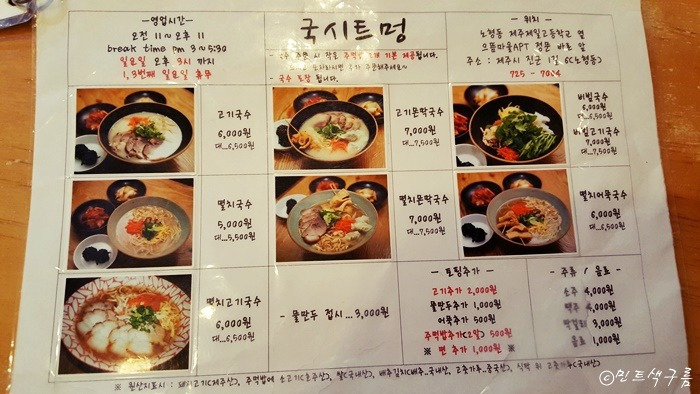 -영업시간-
오전 11 ~ 오후 11
break time pm 3~5:30
일요일 오후 3시 까지
1, 3번째 일요일 휴무
국시트멍
시 작은 기본 제공됩니다.
- 국수 포장 됩니다.
- 위치 -
노형동 제주제일고등학교 옆
으뜸마을APT 정문 바로 앞
주소 : 제주시 진군 1길 (노형동)
725 -
고기국수
6,000원
대...6,500원
고기몬막국수
7,000원
대...7,500원
비빔국수
6,000원
대...6,500원
비빔고기국수
7,000원
대...7,500원
멸치국수
5,000원
대...5,500원
멸치몬막국수
7,000원
대...7,500원
멸치어묵국수
6,000원
대...6,500원
멸치고기국수
6,000원
대...6,500원
- 물만두 접시 ... 3,000원
- 토핑추가 -
고기추가 2,000원
물만두추가 1,000원
어묵추가 500원
주먹밥추가(2알) 500원
※ 면 추가 1,000원 ※
- 주류 / 음료 -
소주 4,000원
맥주 4,000원
막걸리 3,000원
음료 1,000원
※ 원산지표시 : 돼지고기(제주산), 주먹밥에 소고기(호주산), 쌀(국내산), 배추김치(배추-국내산, 고춧가루-중국산), 식탁 위 고춧가루(국내산)
ⓒ민트색구름